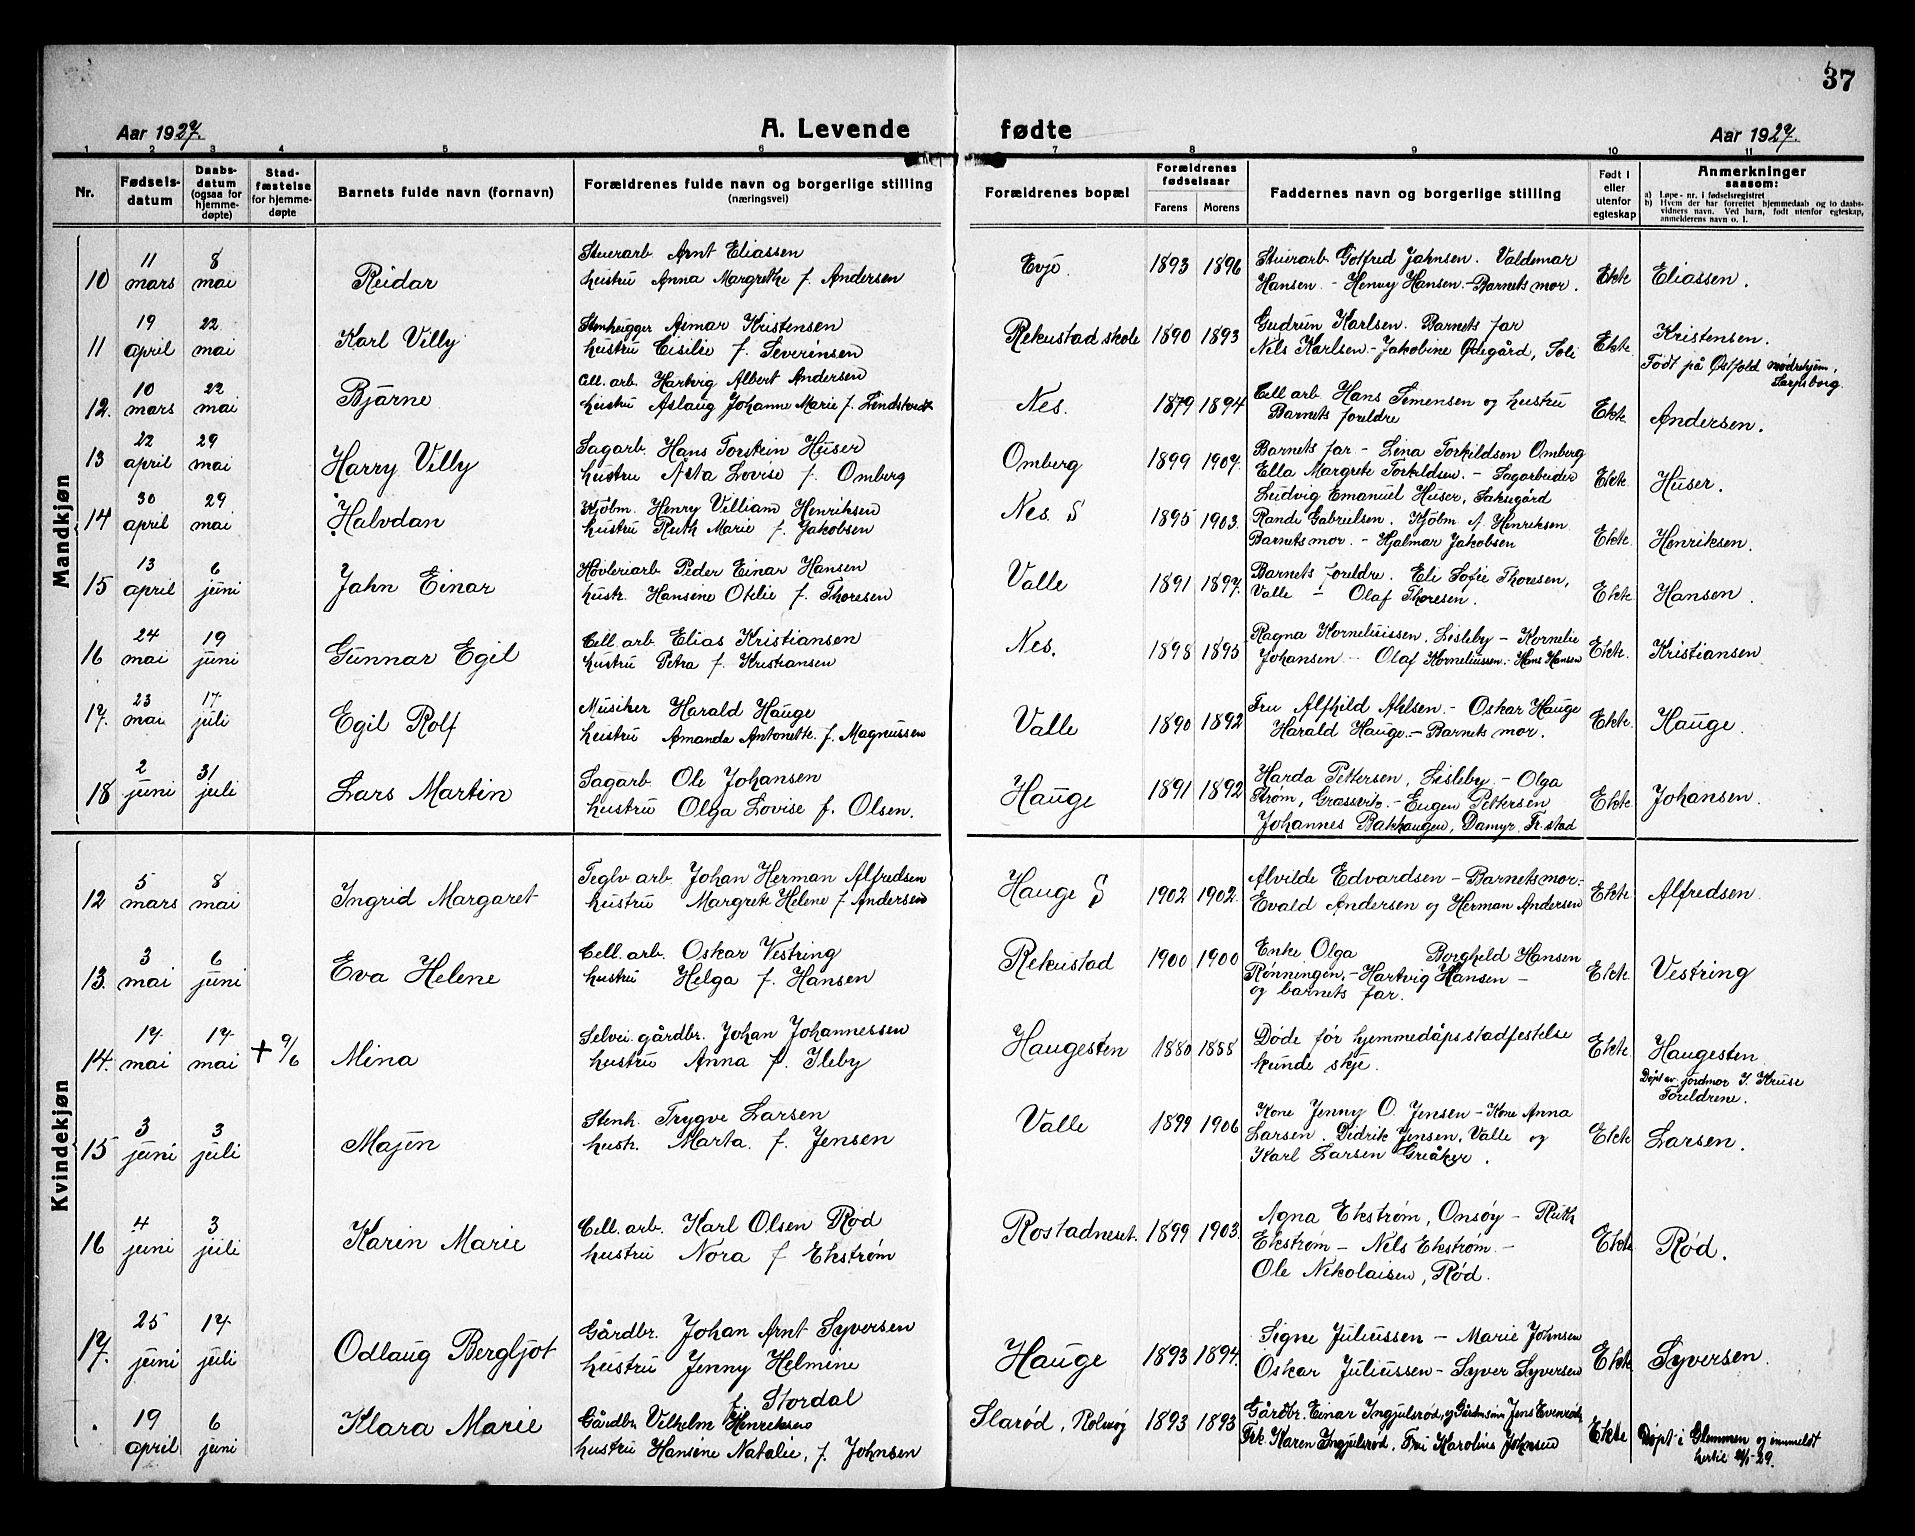 37
Aar 1927. A. Levende fødte Aar 1927.
1 2 3 4 5 6 7 8 9 10 11
Nr. Fødselsdatum Daabsdatum (ogsaa for hjemmedøpte) Stadfæstelse for hjemmedøpte Barnets fulde navn (fornavn) Forældrenes fulde navn og borgerlige stilling (næringsvei) Forældrenes bopæl Forældrenes fødselsaar Farens Morens Faddernes navn og borgerlige stilling Født i eller utenfor egteskap Anmerkninger saasom:
a) Løpe-nr. i fødselsregistret
b) Hvem der har forrettet hjemmedaab og to daabsvidners navn. Ved barn, født utenfor egteskap, anmelderens navn o. l.
Mandkjøn
11 8 Stuerarb Arnt Eliassen Evje. 1893 1896 Stuerarb Gotfred Jahnsen. Valdemar
10 mars mai Reidar hustru Anna Margrethe f. Andersen Hansen - Henry Hansen - Barnets mor. Ekte Eliassen.
19 22 Stenhugger Asmar Kristensen Rekustad skole 1890 1893 Gudrun Karlsen. Barnets far Kristensen.
11 april mai Karl Villy hustru Cisilie f. Severinsen Nils Karlsen - Jakobine Ødegård, Soli Ekte Født på Østfold mødrehjem, Sarpsborg.
10 22 Cell. arb. Hartvig Albert Andersen Nes. 1879 1894 Cell arb. Hans Simensen og hustru
12. mars mai Bjarne hustru Aslaug Johanne Marie f. Lindstedt Barnets foreldre Ekte Andersen.
22 29 Sagarb. Hans Torstein Huser Omberg 1899 1907. Barnets far - Lina Torkildsen Omberg
13 april mai Harry Villy hustru Asta Lovise f. Omberg Ella Margrete Torkildsen - Sagarbeider Ekte Huser.
Ludvig Emanuel Huser, Saksegård
30 29 Kjøbm. Henry Villiam Henriksen Nes. S 1895 1903. Randi Gabrielsen. Kjøbm A. Henriksen
14 april mai Halvdan hustru Ruth Marie f. Jakobsen Barnets mor. - Hjalmar Jakobsen Ekte Henriksen.
13 6 Høvleriarb Peder Einar Hansen Valle 1891 1897. Barnets foreldre. Eli Sofie Thoresen,
15 april juni Jahn Einar hustr. Hansine Otelie f. Thoresen Valle - Olaf Thoresen. Ekte Hansen.
24 19 Cell. arb. Elias Kristiansen Nes. 1898 1895 Ragna Korneliussen, Lisleby - Kornelie
16 mai juni Gunnar Egil hustru Petra f. Kristiansen Johansen - Olaf Korneliussen - Hans Hansen Ekte. Kristiansen
23 17 Musiker Harald Hauge Valle 1890 1892 Fru Alfhild Ahlsen - Oskar Hauge
17. mai juli Egil Rolf hustru Amanda Antonette f. Magnussen Harald Hauge - Barnets mor. Ekte. Hauge.
2 31 Sagarb. Ole Johansen Hauge 1891 1892 Harda Pettersen, Lisleby - Olga
18 juni juli Lars Martin hustru Olga Lovise f. Olsen. Strøm, Græsvik - Eugen Pettersen Ekte Johansen.
Johannes Bakhaugen, Damyr. Fr.stad
Kvindekjøn
5 8 Teglv. arb. Johan Herman Alfredsen Hauge S 1902 1902. Alvilde Edvardsen - Barnets mor -
12 mars mai Ingrid Margaret hustru Margrete Helene f Andersen Evald Andersen og Herman Andersen Ekte. Alfredsen
3 6 Cell. arb. Oskar Vestring Rekustad 1900 1900 Enke Olga Borghild Hansen
13. mai juni Eva Helene hustru Helga f. Hansen Rønningen, - Hartvig Hansen - Ekte Vestring
og barnets far.
17 17 Selvei. gårdbr. Johan Johannessen Haugesten 1880 1888 Døde før hjemmedåpsstadfestelse
14. mai mai + 9/6 Mina hustru Anna f. Ileby kunde skje. Ekte Haugesten
Døpt av jordmor I. Kruse
Foreldrene.
3 3 Stenh. Trygve Larsen Valle 1899 1906 Kone Jenny O. Jensen - Kone Anna
15 juni juli Majen hustr. Marta f. Jensen Larsen. Didrik Jensen, Valle og Ekte Larsen.
Karl Larsen Greåker.
4 3 Cell. arb. Karl Olsen Rød Rostadneset. 1899 1903. Agna Ekstrøm, Onsøy - Ruth
16 juni juli Karin Marie hustru Nora f Ekstrøm Ekstrøm - Nils Ekstrøm - Ekte Rød.
Ole Nikolaisen, Rød.
25 17 Gårdbr. Johan Arnt Syversen Hauge 1893 1894. Signe Juliussen - Marie Johnsen
17. juni juli Odlaug Bergljot hustru Jenny Helmine Oskar Juliussen - Syver Syversen Ekte Syversen.
f. Stordal
19 6 Gårdbr. Vilhelm Henriksen Slarød, Rolvsøy 1893 1893 Gårdbr. Einar Ingjulsrød, og Gårdmann Jens Evenrød,
april juni Klara Marie hustru Hansine Natalie, f. Johnsen Frk. Karen Ingjulsrød, Fru Karoline Johnsen Ekte Døpt i Glemmen og innmeldt
hertil 29.